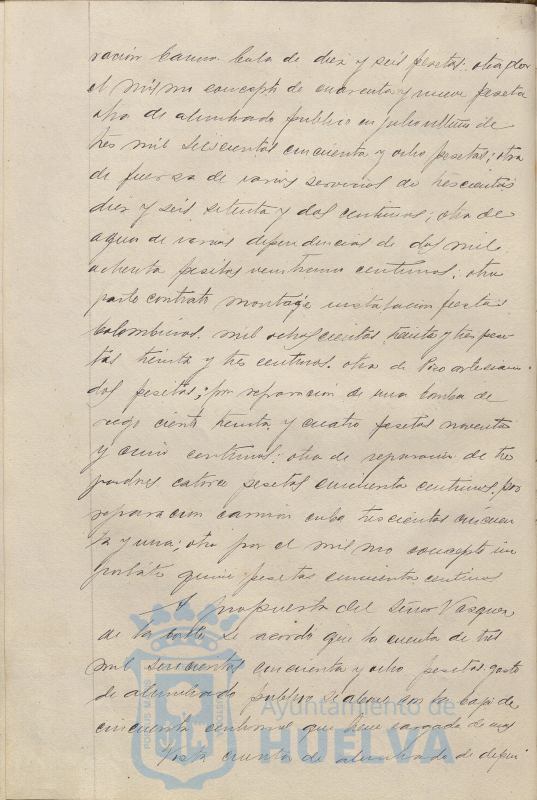 ración carro cuba de diez y seis pesetas: otra por
el mismo concepto de cuarenta y nueve pesetas
otra de alumbrado publico en Julio ultimo de
tres mil seiscientas cincuenta y ocho pesetas; otra
de fuerza de varios servicios de trescientas
diez y seis setenta y dos centimos; otra de
agua de varias dependencias de dos mil
ochenta pesetas veintiuno centimos; otra
parte contrato montage instalacion fiestas
Colombinas. mil ochocientas treinta y tres pese
tas treinta y tres centimos. otra de Pozo artesiano
dos pesetas; por reparacion de una bomba de
riego ciento treinta y cuatro pesetas noventa
y cinco centimos: otra de reparacion de tres
catorce pesetas cincuenta centimos, por
reparacion camión cuba trescientas cincuen
ta y una; otra por el mismo concepto un
quince pesetas cincuenta centimos
A propuesta del Señor Vazquez
de la se acordó que la cuenta de tres
mil seiscientas cincuenta y ocho pesetas gasto
de alumbrado publico se abone con la baja de
cincuenta centimos que tiene cargada de mas
Vista cuenta de alumbrado de
PORTUS MARIS
Ayuntamiento de
HUELVA